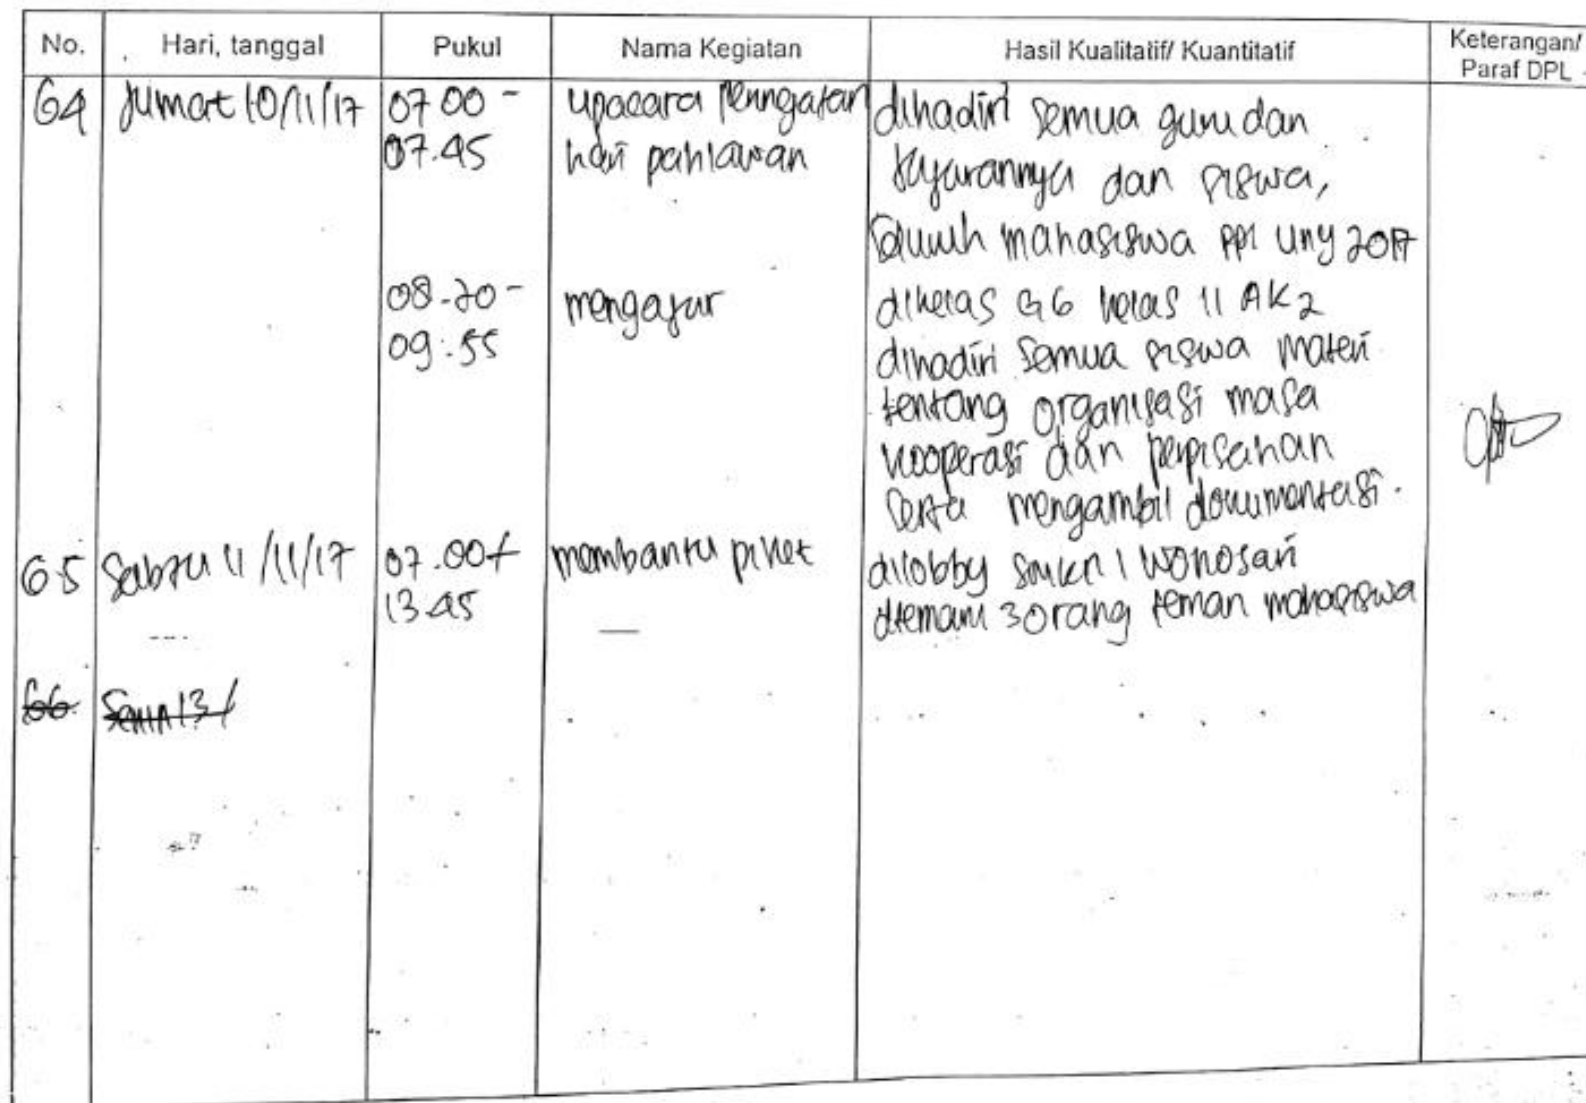 No. Hari, tanggal Pukul Nama Kegiatan Hasil Kualitatif/ Kuantitatif Keterangan/
Paraf DPL
64 Jumat 10/11/17 07 00 - upacara peringatan dihadiri semua guru dan
07.45 hari pahlawan jajarannya dan siswa,
seluruh mahasiswa ppl uny 2017
08.20 - mengajar dikelas G6 kelas 11 AK2
09.55 dihadiri semua siswa materi
tentang organisasi masa
kooperasi dan perpisahan
serta mengambil dokumentasi.
65 Sabtu 11/11/17 07.00 - membantu piket dilobby smkn 1 wonosari
13.45 ditemani 3 orang teman mahasiswa
66 Senin 13/